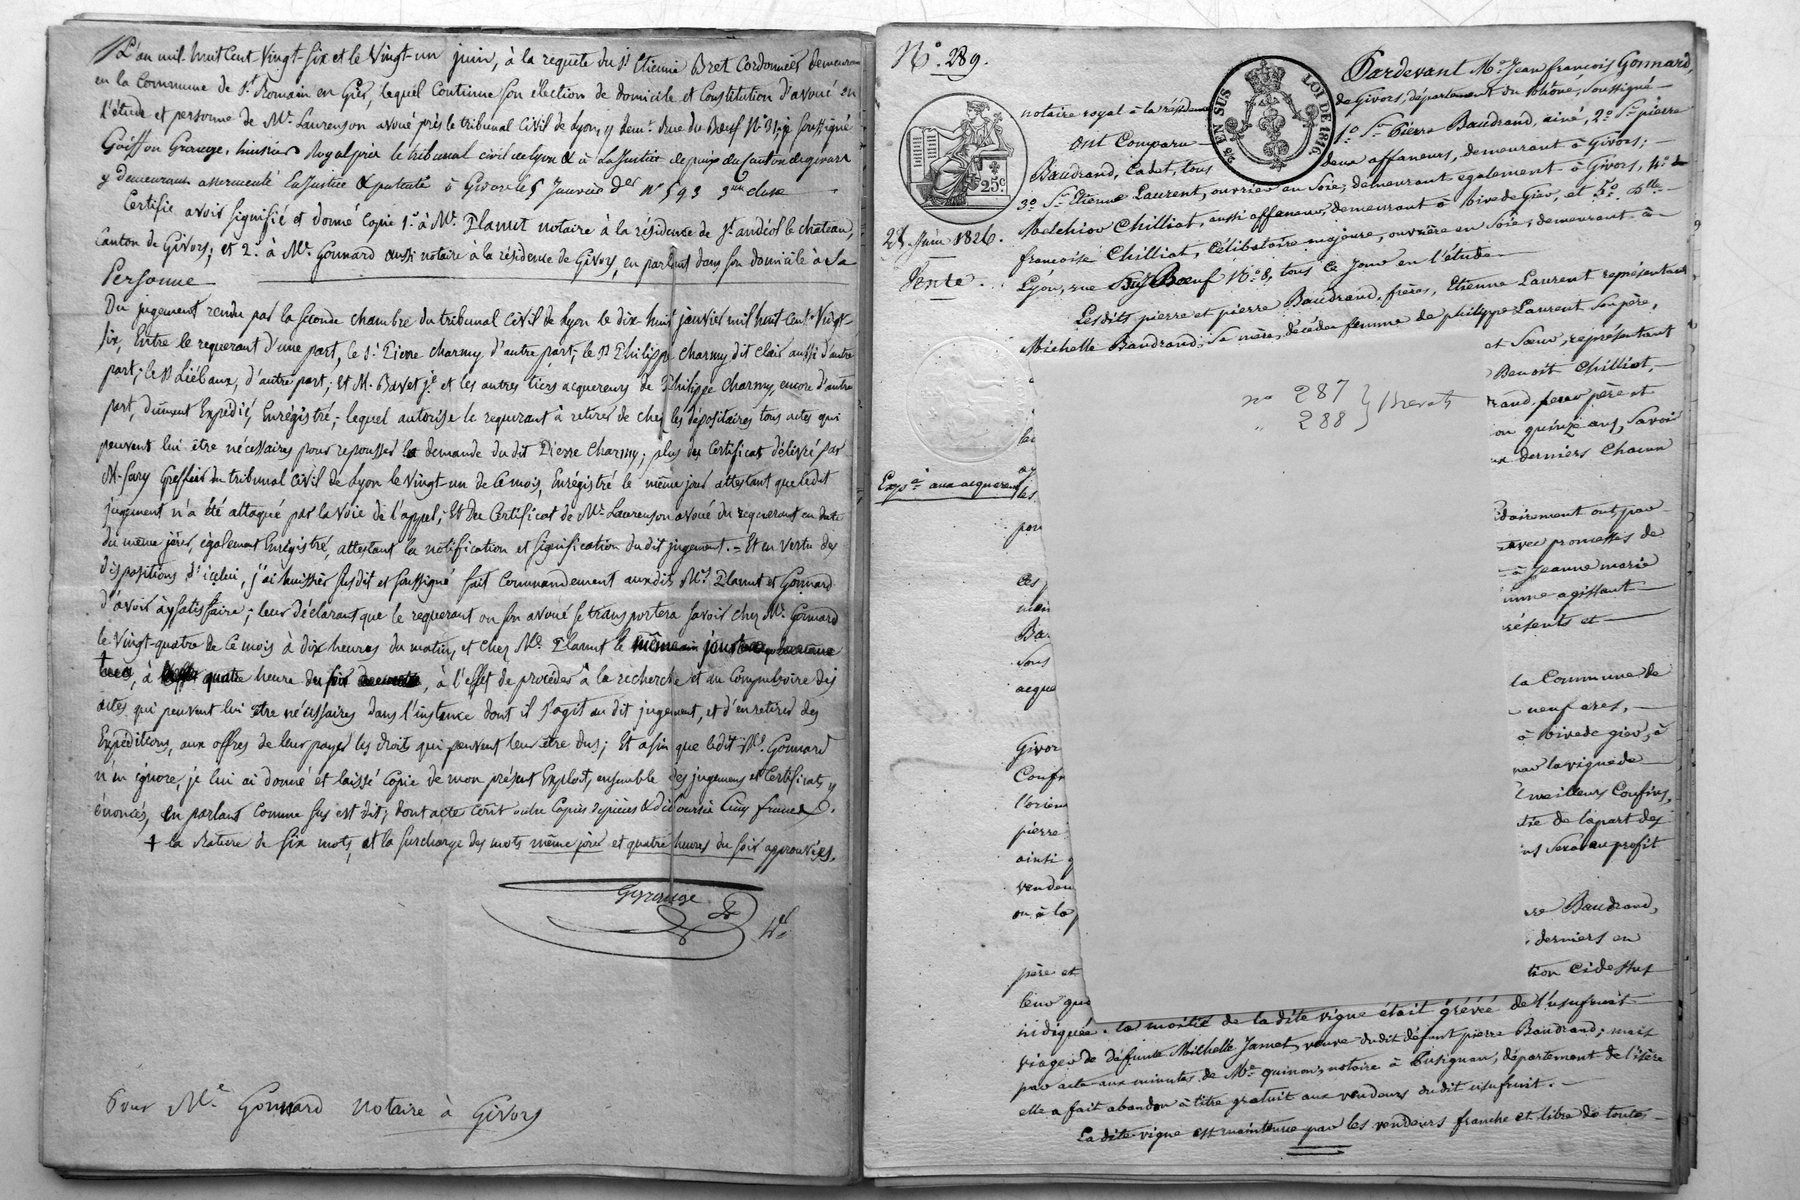 L'an mil huit cent vingt-six et le vingt-un juin, à la requête du Sr Etienne Bret Cordonnier demeurant
en la Commune de St Romain en Gier, lequel continue son élection de domicile et Constitution d'avoué en
l'étude et personne de Me Laurenson avoué près le tribunal Civil de Lyon, y demt rue du Bœuf No 31, je soussigné
huissier Royal près le tribunal civil de Lyon & à la Justice de paix du Canton de givors
y demeurant assermenté En Justice & patenté à Givors le 5 Janvier der No 593 3me classe
Certifie avoir signifié et donné Copie 1o à Me Plamet notaire à la résidence de St andéol le château,
Canton de Givors; et 2o à Me Gonnard aussi notaire à la résidence de Givors, en parlant dans son domicile à Sa
Personne
Du jugement rendu par la seconde chambre du tribunal Civil de Lyon le dix-huit janvier mil huit cent vingt-
six, Entre le requerant d'une part, le Sr Pierre Charmy d'autre part, le Sr Philippe Charmy dit clair aussi d'autre
part; le Sr Liébaux, d'autre part; Et M. Bavet je et les autres tiers acquereurs de Philippe Charmy, encore d'autre
part, dûment Expédié, Enrégistré; lequel autorise le requerant à retirer de chez les dépositaires tous actes qui
peuvent lui être nécessaires pour repousser la demande du dit Pierre Charmy; plus du Certificat délivré par
M. Greffier du tribunal Civil de Lyon le vingt-un de Ce mois, Enrégistré le même jour attestant que ledit
jugement n'a été attaqué par la voie de l'appel; Et du Certificat de Me Laurenson avoué du requerant en date
du même jour, également Enrégistré, attestant la notification et signification du dit jugement. = Et en vertu des
dispositions d'icelui, j'ai huissier susdit et soussigné fait Commandement auxdits Mes Plamet et Gonnard
d'avoir à y satisfaire; leur déclarant que le requerant ou son avoué se transportera savoir chez Me Gonnard
le vingt-quatre de Ce mois à dix heures du matin, et chez Me Plamet le même jour
à quatre heure du soir, à l'effet de procéder à la recherche et au Compulsoire des
actes qui peuvent lui être nécessaires dans l'instance dont il s'agit au dit jugement, et d'en retirer des
Expéditions, aux offres de leur payer les droits qui peuvent leur être dus; Et afin que ledit Me Gonnard
n'en ignore, je lui ai donné et laissé Copie de mon présent Exploit, ensemble des jugement et Certificats y
énoncés, en parlant comme sus est dit; dont acte coût outre Copies de pièces & déboursés Cinq francs
† la rature de six mots, et la surcharge des mots même jour et quatre heures du soir approuvées.
Pour Me Gonnard notaire à Givors
No 289.
25 EN SUS LOI DE 1816
25c
Pardevant Me Jean françois Gonnard,
notaire royal à la résidence de Givors, département du Rhône, soussigné
ont Comparu 1o Sr Pierre Baudrand, ainé, 2o Sr pierre
Baudrand, Cadet, tous deux affaneurs, demeurant à Givors;
3o Sr Etienne Laurent, ouvrier en Soie, demeurant également à Givors, 4o
Melchior Chilliat, aussi affaneur, demeurant à Rive de Gier, et 5o Dlle
françoise Chilliat, Célibataire majeure, ouvrière en Soie, demeurant à
Lyon, rue du Bœuf No 8, tous Ce jour en l'étude
Juin 1826.
Vente.
Lesdits pierre et pierre Baudrand, frères, Etienne Laurent représentant
Michelle Baudrand, Sa mère, décédée femme de philippe Laurent Son père,
et Sœur, représentant
Benoit Chilliat,
no 287
288 } Brevets
père et
quinze ans, Savoir
derniers Chacun
Expon aux acquereurs
les
ont par
avec promesses de
à Jeanne marie
agissant
et
la Commune de
neuf ares,
à Rive de gier, à
la vigne de
meilleurs Confins,
de la part des
Sera au profit
Baudrand,
derniers en
ci dessus
pierre
ainsi
ou à la
père et
indiquée. la moitié de la dite vigne était grévée de l'usufruit
viager de défunte Michelle Jamet, veuve du dit défunt pierre Baudrand; mais
par acte aux minutes de Me quinon, notaire à Pusignan, département de l'isère
elle a fait abandon à titre gratuit aux vendeurs du dit usufruit.
La dite vigne est maintenue par les vendeurs franche et libre de toute